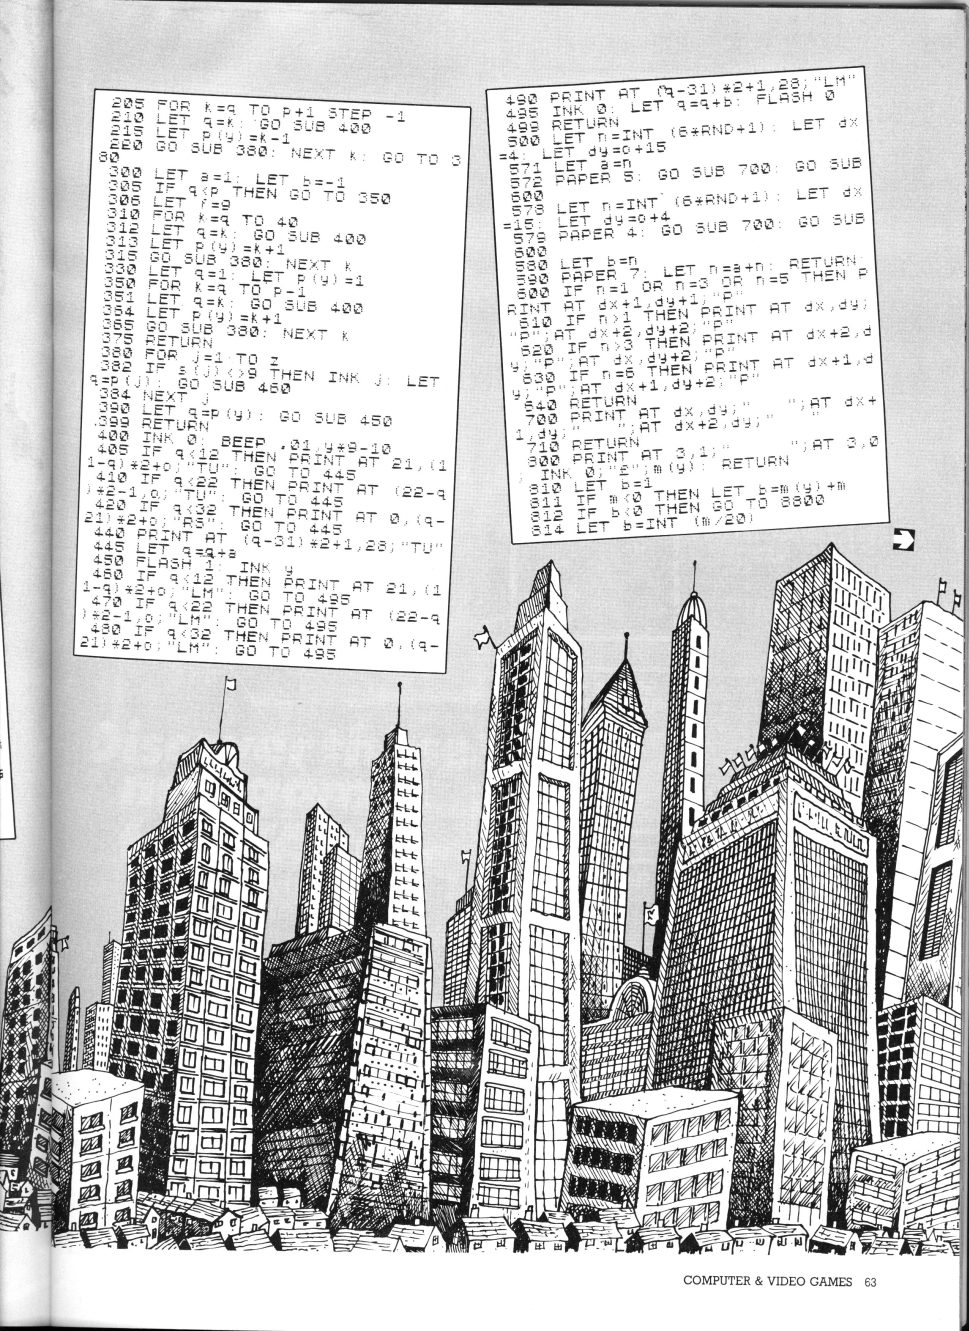 205 FOR k=q TO p+1 STEP -1
210 LET q=k: GO SUB 400
215 LET p(y)=k-1
220 GO SUB 380: NEXT k: GO TO 3
80
300 LET a=1: LET b=-1
305 IF q<p THEN GO TO 350
306 LET f=9
310 FOR k=q TO 40
312 LET q=k: GO SUB 400
313 LET p(y)=k+1
315 GO SUB 380: NEXT k
330 LET q=1: LET p(y)=1
350 FOR k=q TO p-1
351 LET q=k: GO SUB 400
354 LET p(y)=k+1
365 GO SUB 380: NEXT k
375 RETURN
380 FOR j=1 TO z
382 IF s(j)<>9 THEN INK j: LET
q=p(j): GO SUB 460
384 NEXT j
390 LET q=p(y): GO SUB 450
399 RETURN
400 INK 0: BEEP .01,y*9-10
405 IF q<12 THEN PRINT AT 21,(1
1-q)*2+o;"TU": GO TO 445
410 IF q<22 THEN PRINT AT (22-q
)*2-1,o;"TU": GO TO 445
420 IF q<32 THEN PRINT AT 0,(q-
21)*2+o;"RS": GO TO 445
440 PRINT AT (q-31)*2+1,28;"TU"
445 LET q=q+a
450 FLASH 1: INK y
460 IF q<12 THEN PRINT AT 21,(1
1-q)*2+o;"LM": GO TO 495
470 IF q<22 THEN PRINT AT (22-q
)*2-1,o;"LM": GO TO 495
480 IF q<32 THEN PRINT AT 0,(q-
21)*2+o;"LM": GO TO 495
490 PRINT AT (q-31)*2+1,28;"LM"
495 INK 0: LET q=q+b: FLASH 0
499 RETURN
500 LET n=INT (6*RND+1): LET dx
=4: LET dy=o+15
571 LET a=n
572 PAPER 5: GO SUB 700: GO SUB
600
578 LET n=INT (6*RND+1): LET dx
=15: LET dy=o+4
579 PAPER 4: GO SUB 700: GO SUB
600
580 LET b=n
590 PAPER 7: LET n=a+n: RETURN
600 IF n=1 OR n=3 OR n=5 THEN P
RINT AT dx+1,dy+1;"P"
610 IF n>1 THEN PRINT AT dx,dy;
"P";AT dx+2,dy+2;"P"
620 IF n>3 THEN PRINT AT dx+2,d
y;"P";AT dx,dy+2;"P"
630 IF n=6 THEN PRINT AT dx+1,d
y;"P";AT dx+1,dy+2;"P"
640 RETURN
700 PRINT AT dx,dy;"   ";AT dx+
1,dy;"   ";AT dx+2,dy;"   "
710 RETURN
800 PRINT AT 3,1;"      ";AT 3,0
; INK 0;"£";m(y): RETURN
810 LET b=1
811 IF m<0 THEN LET b=m(y)+m
812 IF b<0 THEN GO TO 8800
814 LET b=INT (m/20)
COMPUTER & VIDEO GAMES 63